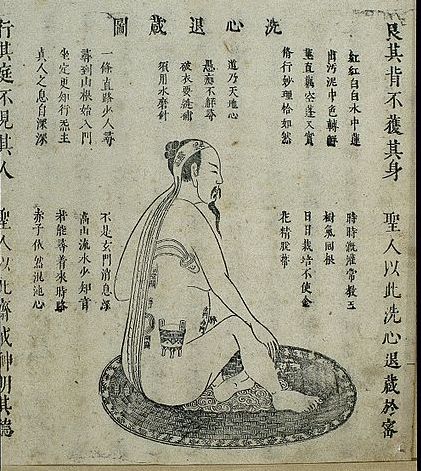 洗心退藏圖
艮其背不獲其身
聖人以此洗心退藏於密
紅紅白白水中蓮
出污泥中色轉鮮
莖直藕空蓬又實
脩行妙理恰如然
道乃天地心
愚癡不解尋
破衣要線補
須用水磨針
一條直路少人尋
尋到山根始入門
坐定更知行炁主
真人之息自深深
時時溉灌常教玉
樹氣回根
日日栽培不使金
花精脫蒂
不是玄門消息深
高山流水少知音
若能尋着來時路
赤子依然混沌心
行其庭不見其人
聖人以此齋戒神明其德